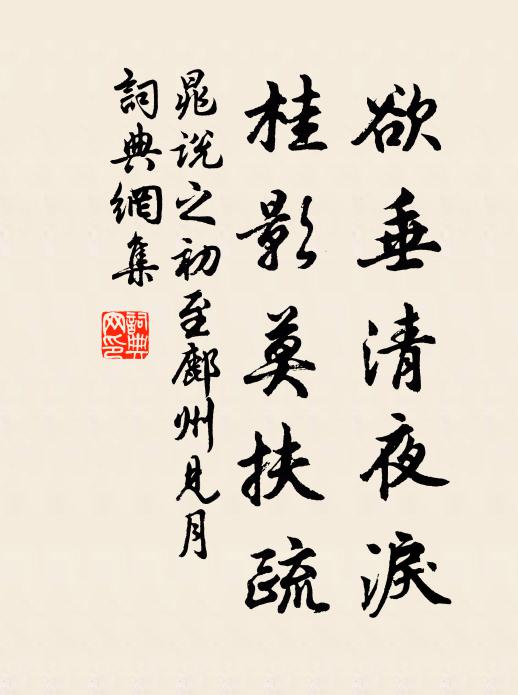 欲垂清夜淚
桂影莫扶疏
晁說之初至鄜州見月
詞典網集
詞典
网印